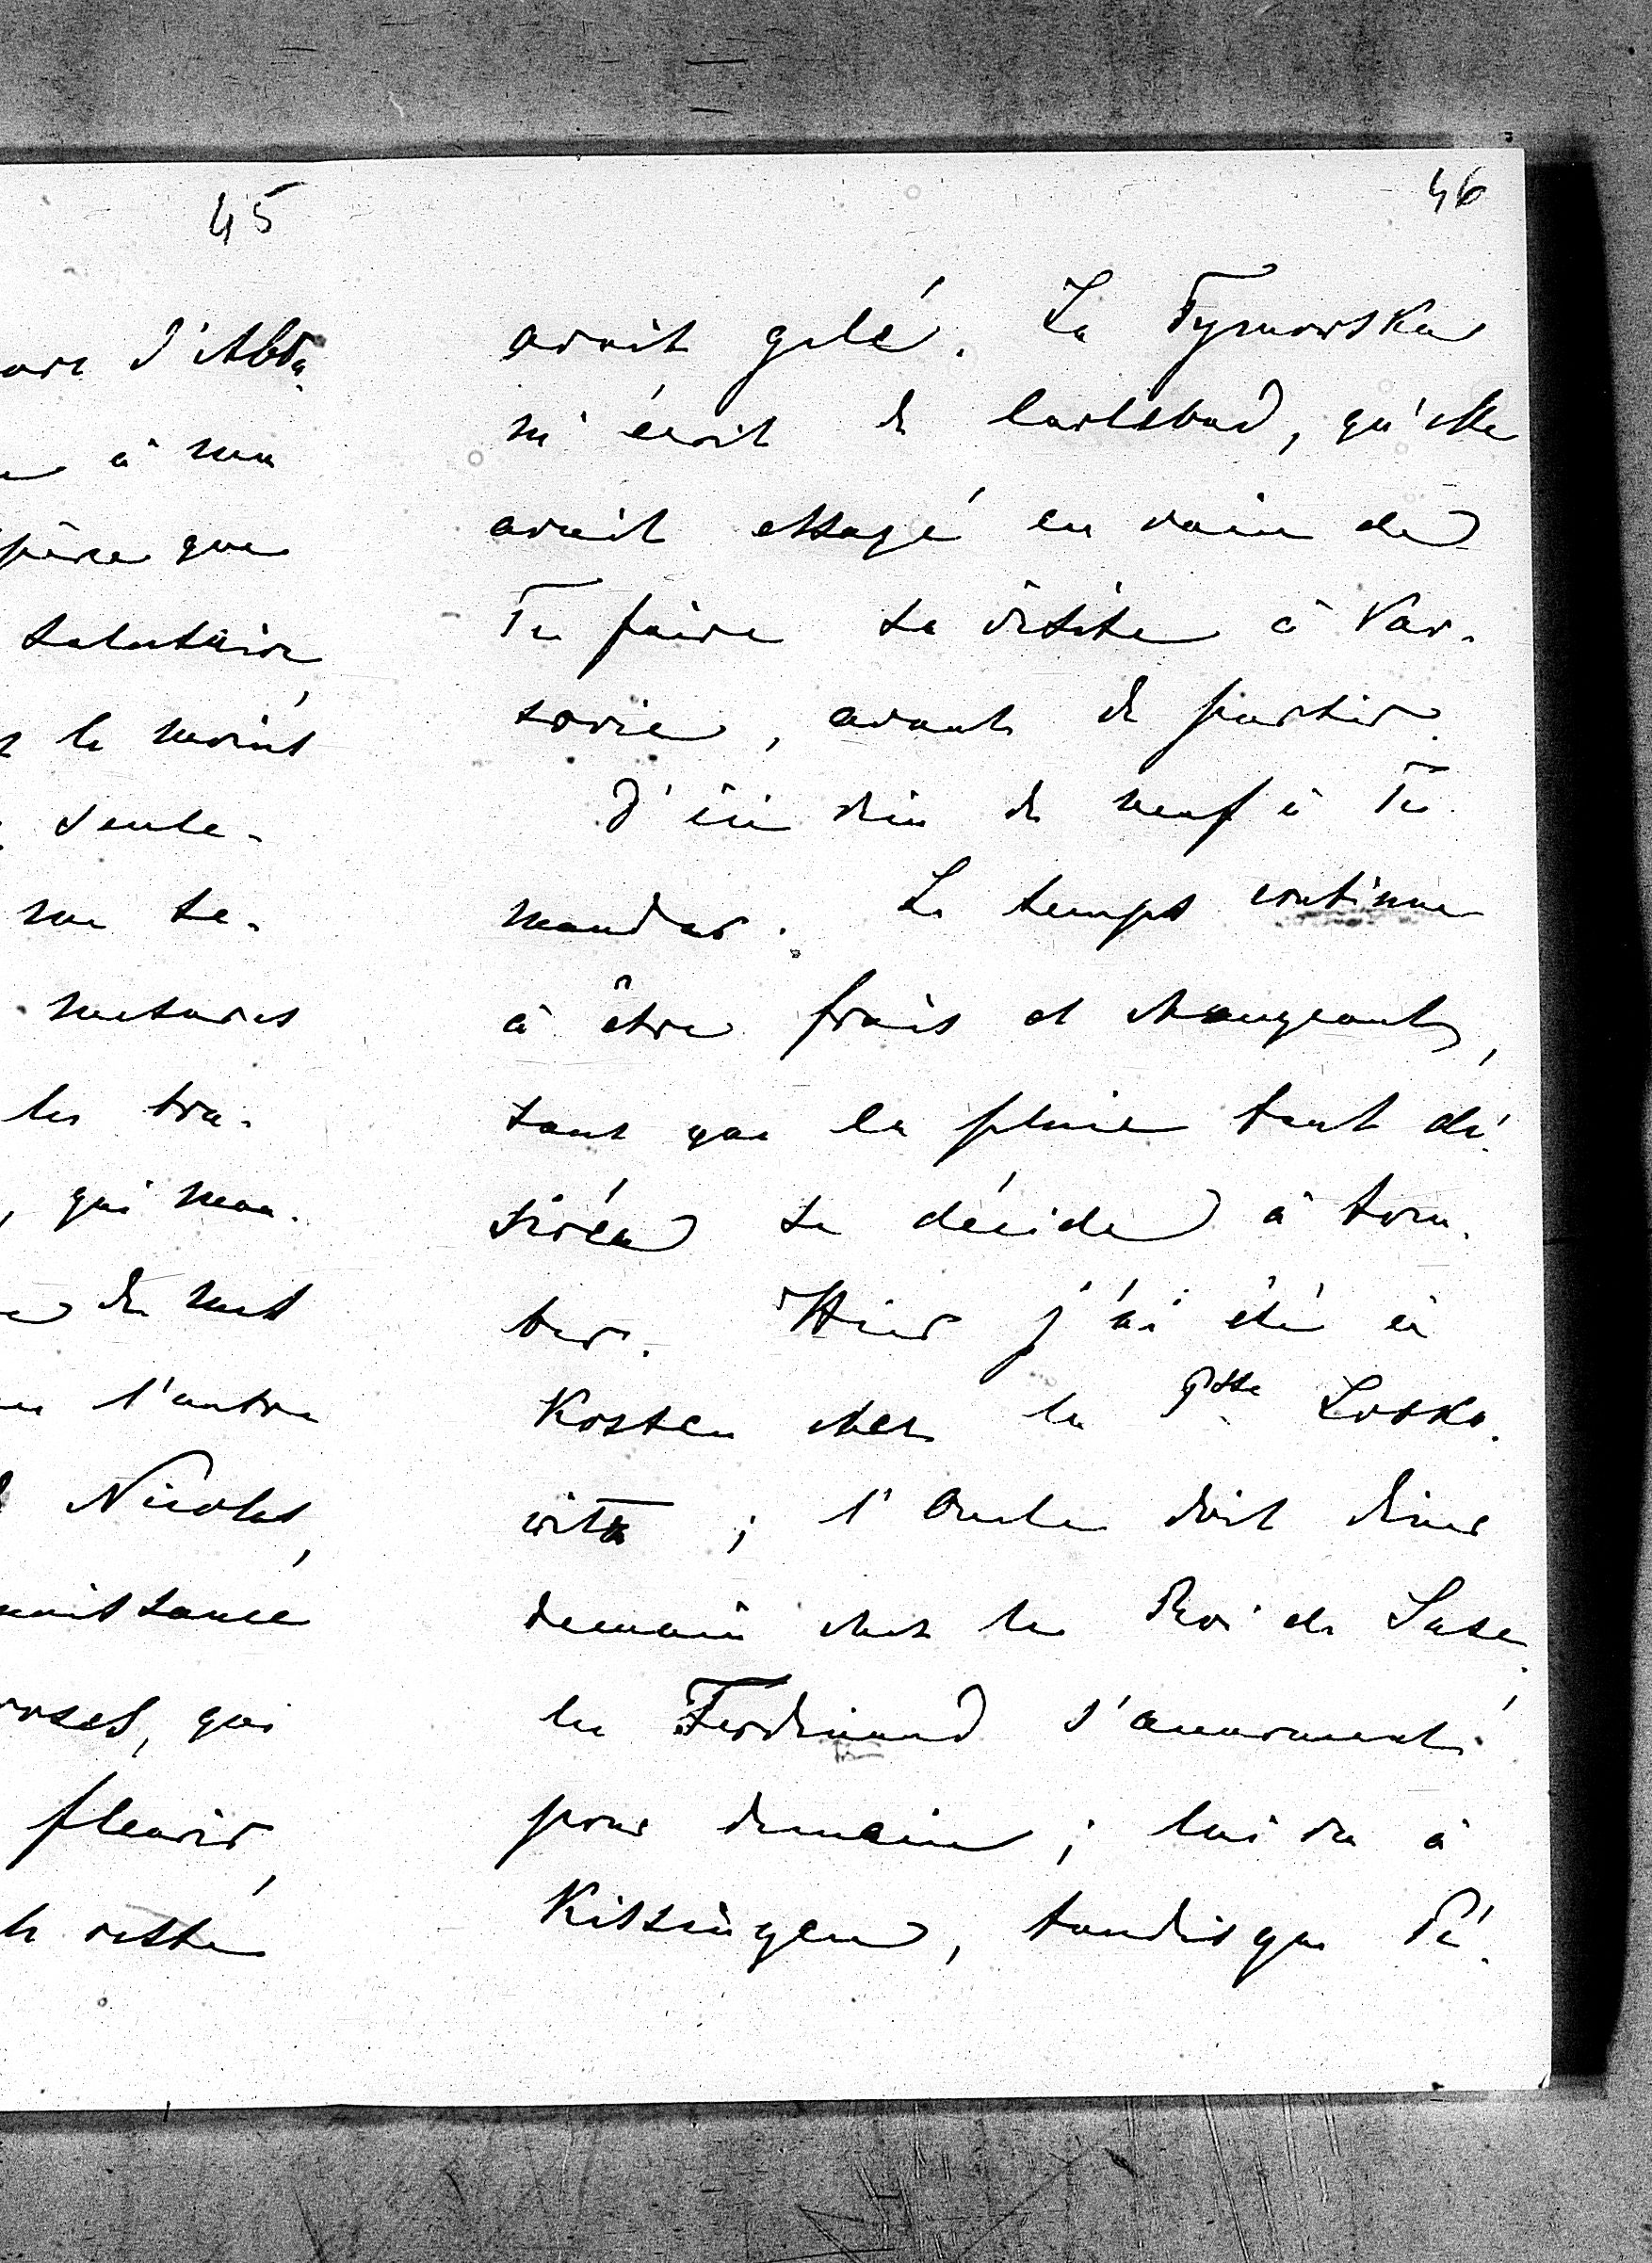 45
d'Abba
à ma
père que
salutaire,
le moins
seule-
me se-
mesures
les tra-
, qui man-
de mes
l'autre
Nicolas,
naissance
roses, qui
fleurir,
reste
46
avait gelé. La Tymowska
m'écrit de Carlsbad, qu'elle
avait essayé en vain de
Te faire sa visite à Var-
sovie, avant de partir.
D'ici rien de neuf à Te
mander. Le temps continue
à être frais et changeant,
sans que la pluie tant dé-
sirée se décide à tom-
ber. Hier j'ai été à
Kosten chez la Psse Lobko-
witz ; l'Oncle doit diner
demain chez le Roi de Saxe,
les Ferdinand s'annoncent
pour demain ; lui va à
Kissingen, tandis que Pé-